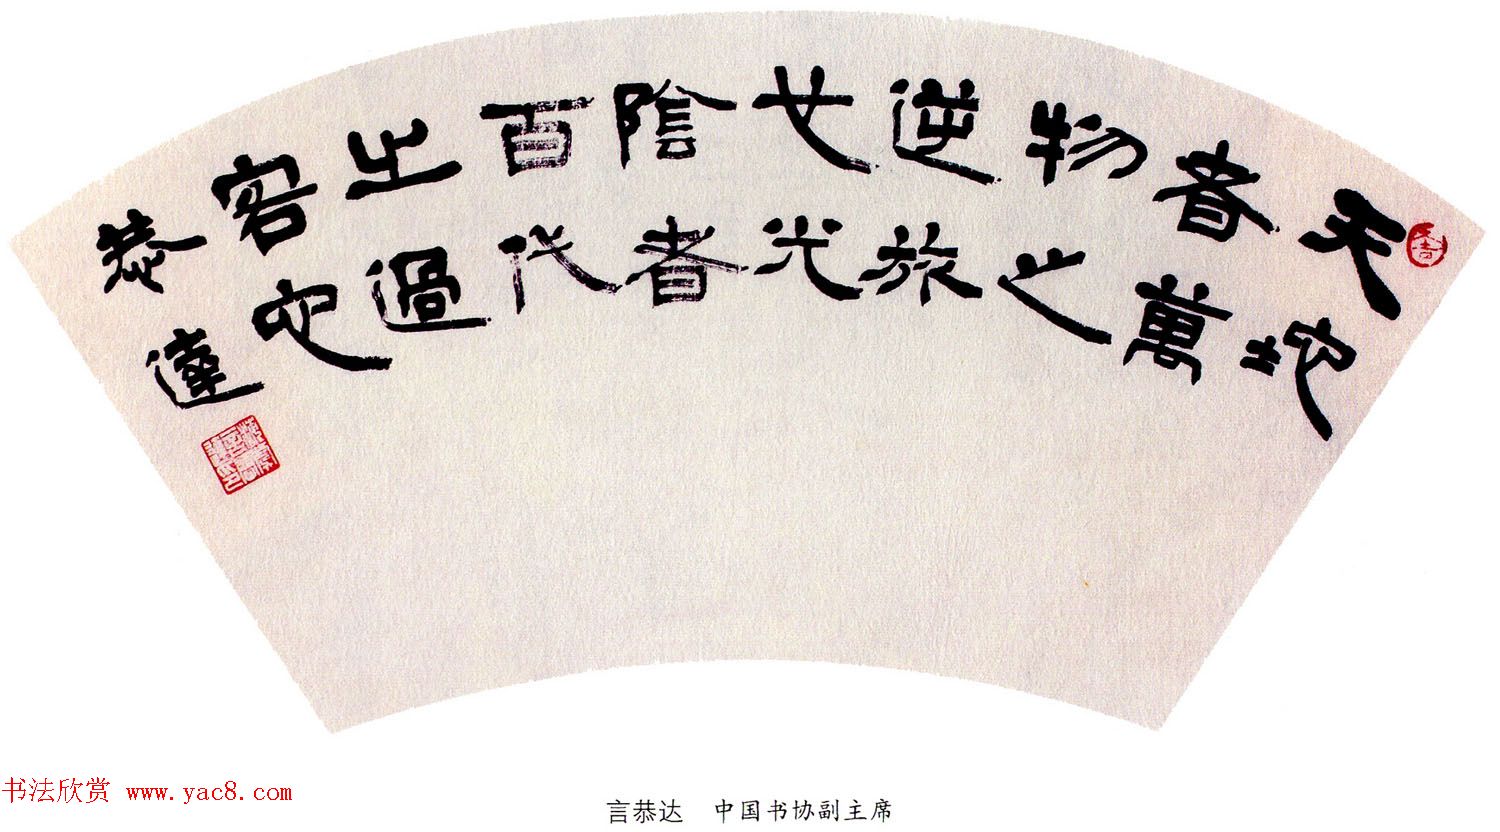 天地
者萬
物之
逆旅
也光
陰者
百代
之過
客也
恭達
书法欣赏 www.yac8.com
言恭达 中国书协副主席